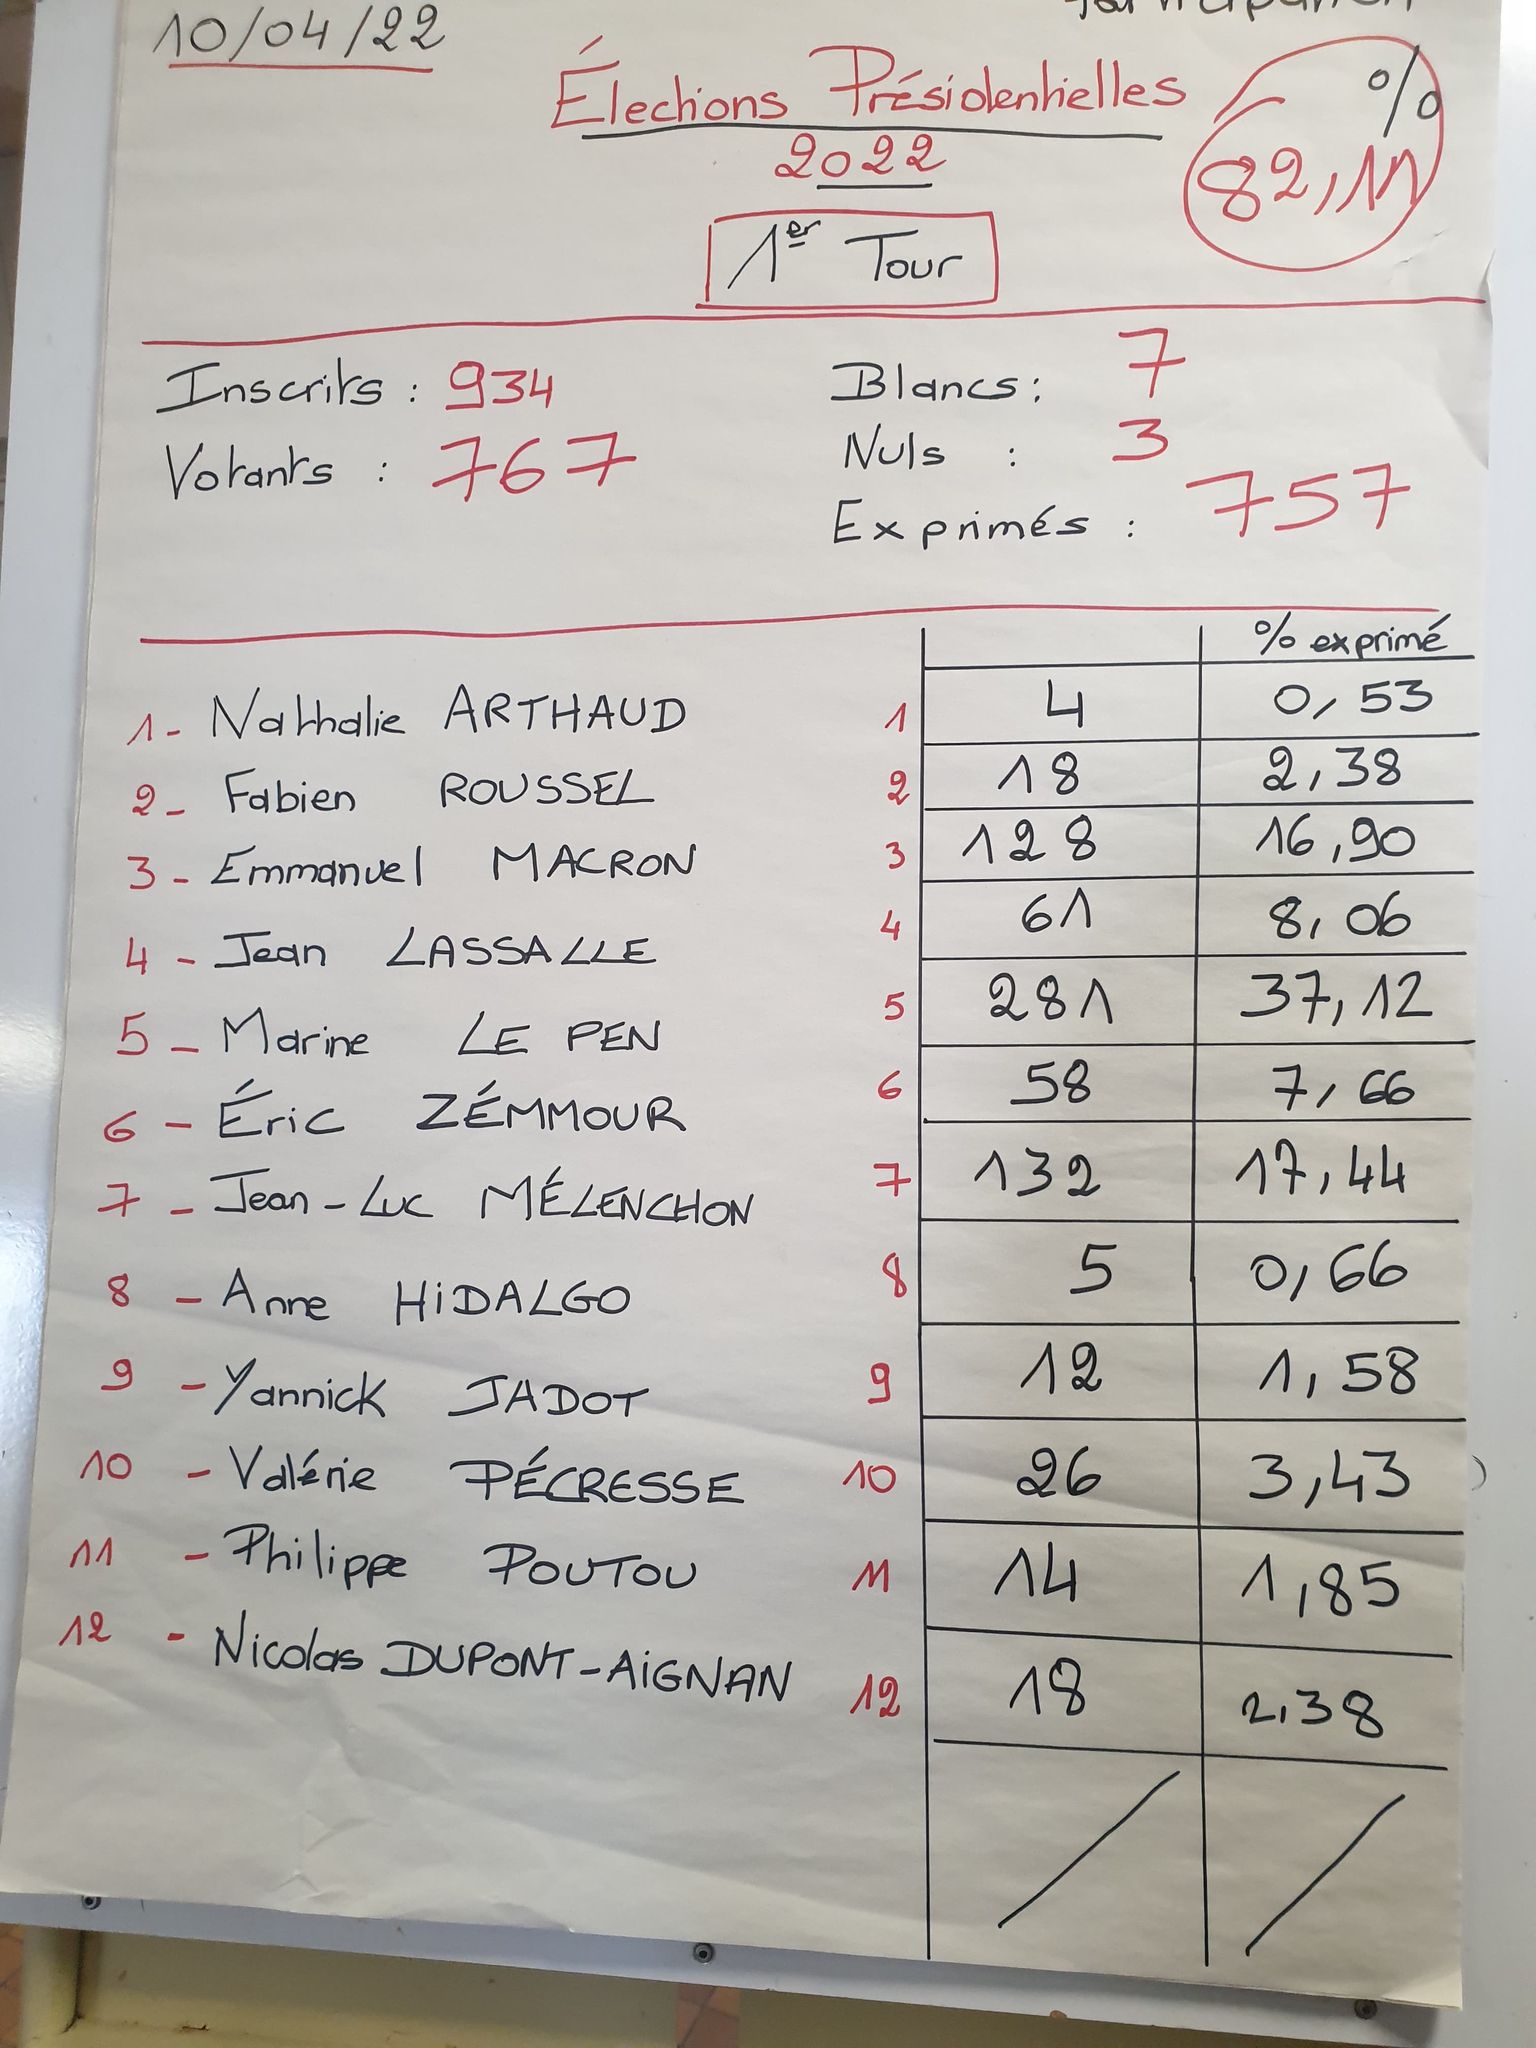 10/04/22
participation
Élections Présidentielles
%
2022
82,11
1er Tour
Inscrits : 934
Blancs : 7
Votants : 767
Nuls : 3
Exprimés : 757
% exprimé
1- Nathalie ARTHAUD 1 4 0,53
2- Fabien ROUSSEL 2 18 2,38
3- Emmanuel MACRON 3 128 16,90
4- Jean LASSALLE 4 61 8,06
5- Marine LE PEN 5 281 37,12
6- Éric ZÉMMOUR 6 58 7,66
7- Jean-Luc MÉLENCHON 7 132 17,44
8- Anne HiDALGO 8 5 0,66
9- Yannick JADOT 9 12 1,58
10- Valérie PÉCRESSE 10 26 3,43
11- Philippe POUTOU 11 14 1,85
12- Nicolas DUPONT-AiGNAN 12 18 2,38